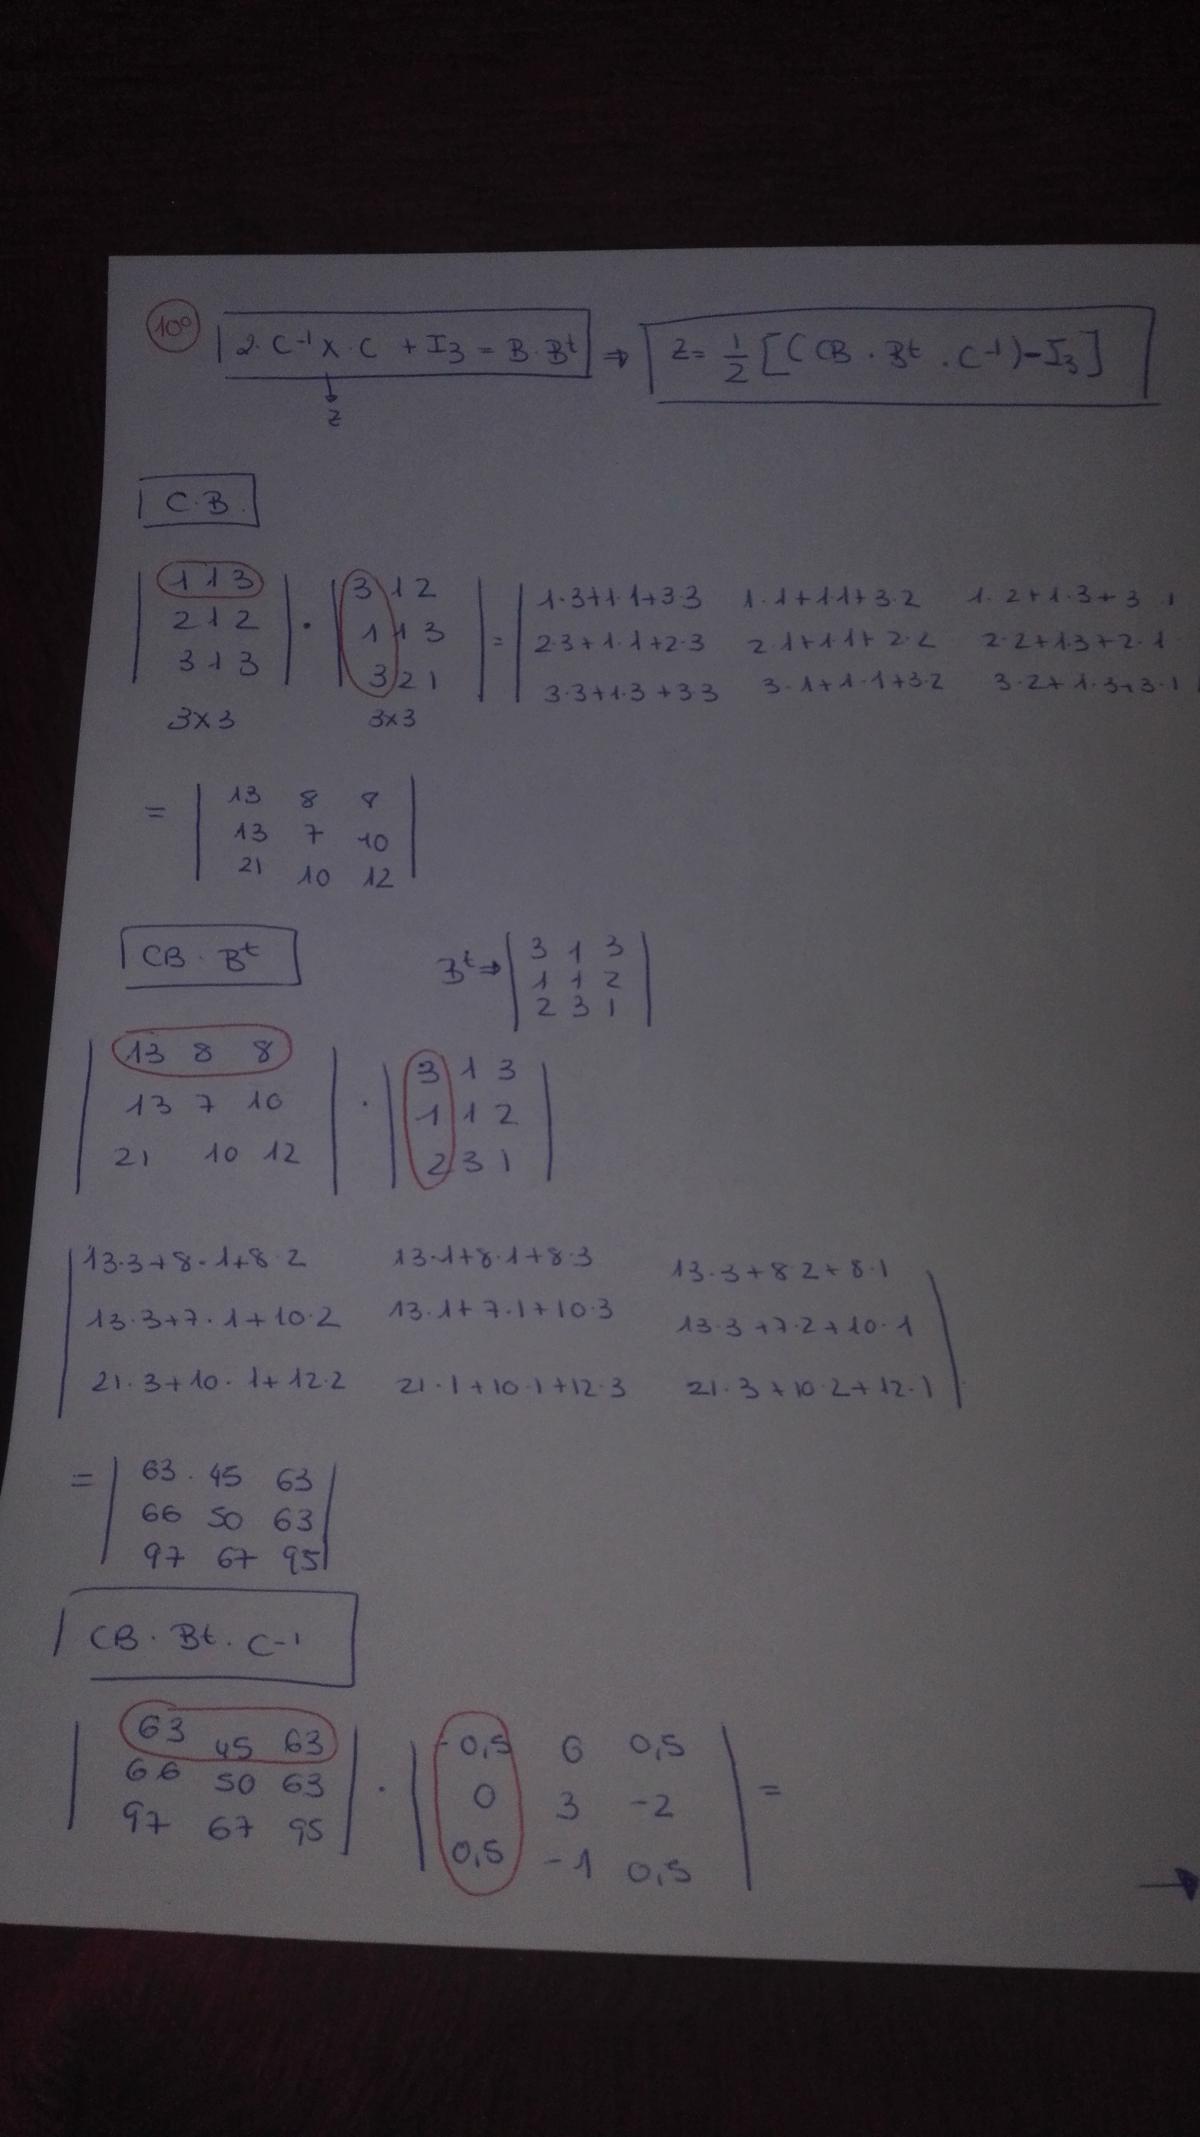 10º
2·C⁻¹ X·C + I3 = B·Bᵗ ⇒ z = 1/2 [(CB · Bᵗ · C⁻¹) - I₃]
↓
z
C·B.
| 1 1 3 | | 3 1 2 | | 1·3+1·1+3·3 1·1+1·1+3·2 1·2+1·3+3·1
| 2 1 2 | · | 1 1 3 | = | 2·3+1·1+2·3 2·1+1·1+2·2 2·2+1·3+2·1
| 3 1 3 | | 3 2 1 | | 3·3+1·3+3·3 3·1+1·1+3·2 3·2+1·3+3·1
3x3 3x3
= | 13 8 8 |
| 13 7 10 |
| 21 10 12 |
CB · Bᵗ
Bᵗ ⇒ | 3 1 3 |
| 1 1 2 |
| 2 3 1 |
| 13 8 8 | | 3 1 3 |
| 13 7 10 | · | 1 1 2 |
| 21 10 12 | | 2 3 1 |
| 13·3+8·1+8·2 13·1+8·1+8·3 13·3+8·2+8·1 |
| 13·3+7·1+10·2 13·1+7·1+10·3 13·3+7·2+10·1 |
| 21·3+10·1+12·2 21·1+10·1+12·3 21·3+10·2+12·1 |
= | 63 45 63 |
| 66 50 63 |
| 97 67 95 |
CB · Bt · C-1
| 63 45 63 | | -0,5 6 0,5 |
| 66 50 63 | · | 0 3 -2 | =
| 97 67 95 | | 0,5 -1 0,5 |
→